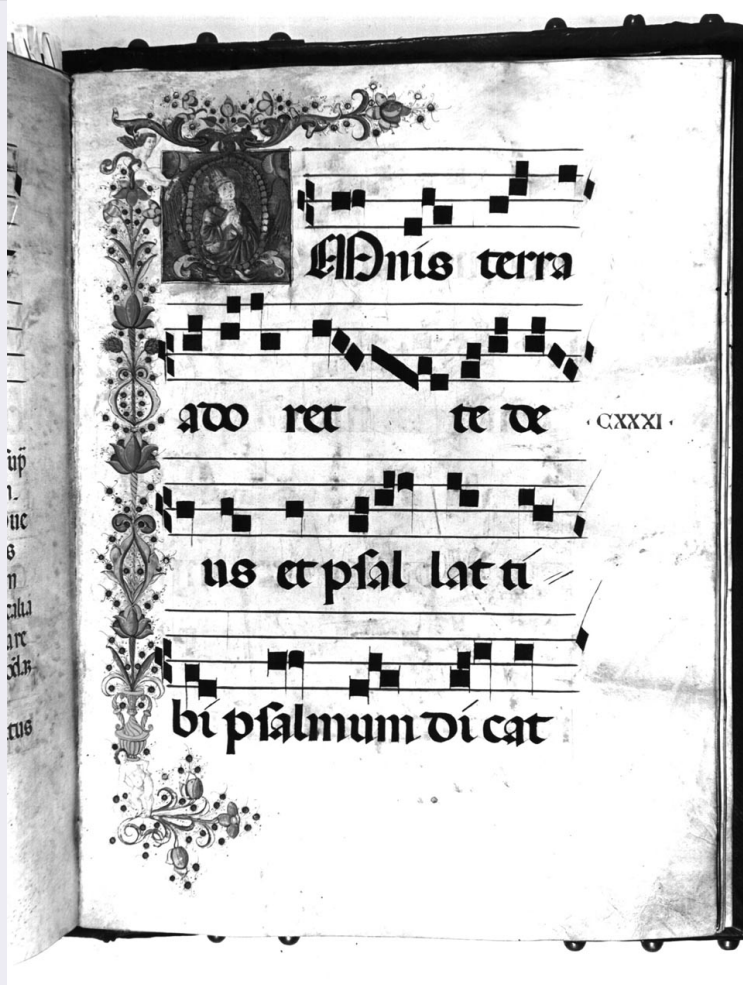 OMnis terra
ado ret te de
CXXXI
us et psal lat ti
bi psalmum di cat
sup
re
tus